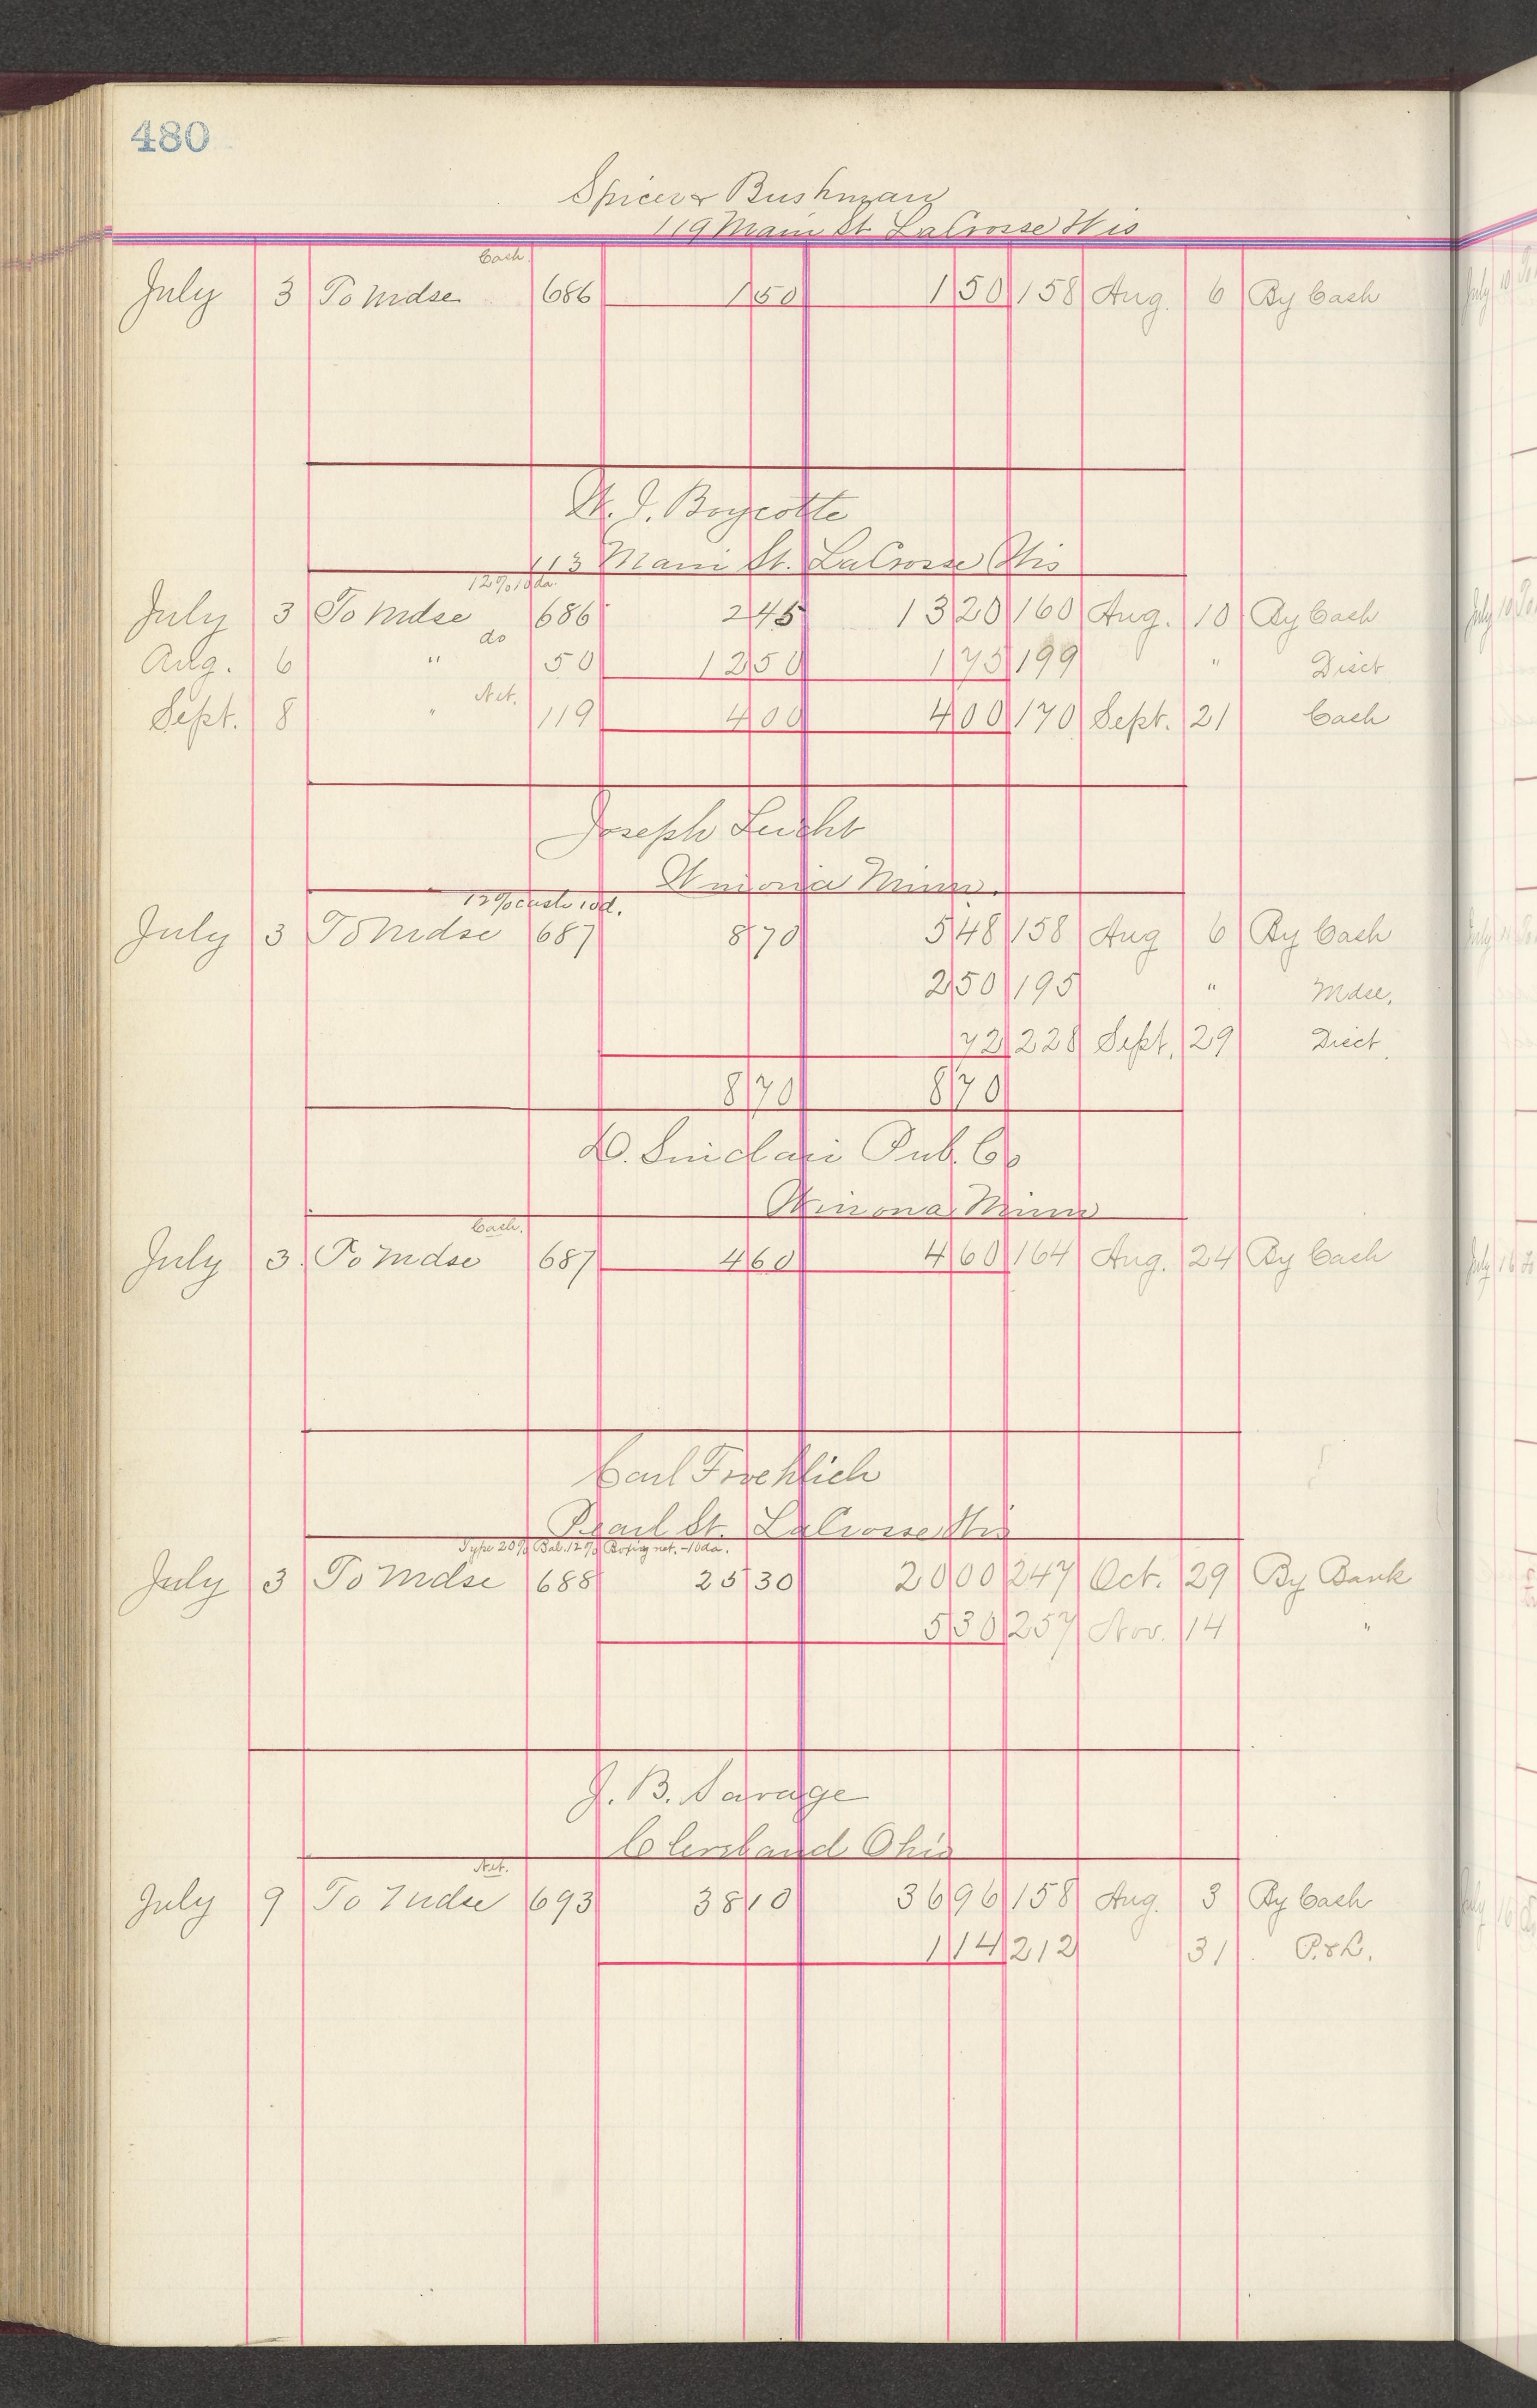 480
Spicer & Bushman
119 Main St LaCrosse Wis
Cash
July 3 To Mdse 686 1 50 1 50 158 Aug. 6 By Cash
W. J. Boycotte
113 Main St. LaCrosse Wis
12% 10 da.
July 3 To Mdse 686 2 45 13 20 160 Aug. 10 By Cash
do
Aug. 6 " 50 12 50 1 75 199 " Disct
Net.
Sept. 8 " 119 4 00 4 00 170 Sept. 21 Cash
Joseph Leicht
Winona Minn.
12% cash 10 d.
July 3 To Mdse 687 8 70 5 48 158 Aug 6 By Cash
2 50 195 " Mdse.
72 228 Sept. 29 Disct.
8 70 8 70
D. Sinclair Pub. Co
Winona Minn
Cash.
July 3. To Mdse 687 4 60 4 60 164 Aug. 24 By Cash
Carl Froehlich
Pearl St. LaCrosse Wis
Type 20% Bal. 12% Boxing net. - 10 da.
July 3 To Mdse 688 25 30 20 00 247 Oct. 29 By Bank
5 30 257 Nov. 14 "
J. B. Savage
Cleveland Ohio
Net.
July 9 To Mdse 693 38 10 36 96 158 Aug. 3 By Cash
1 14 212 31 P. & L.